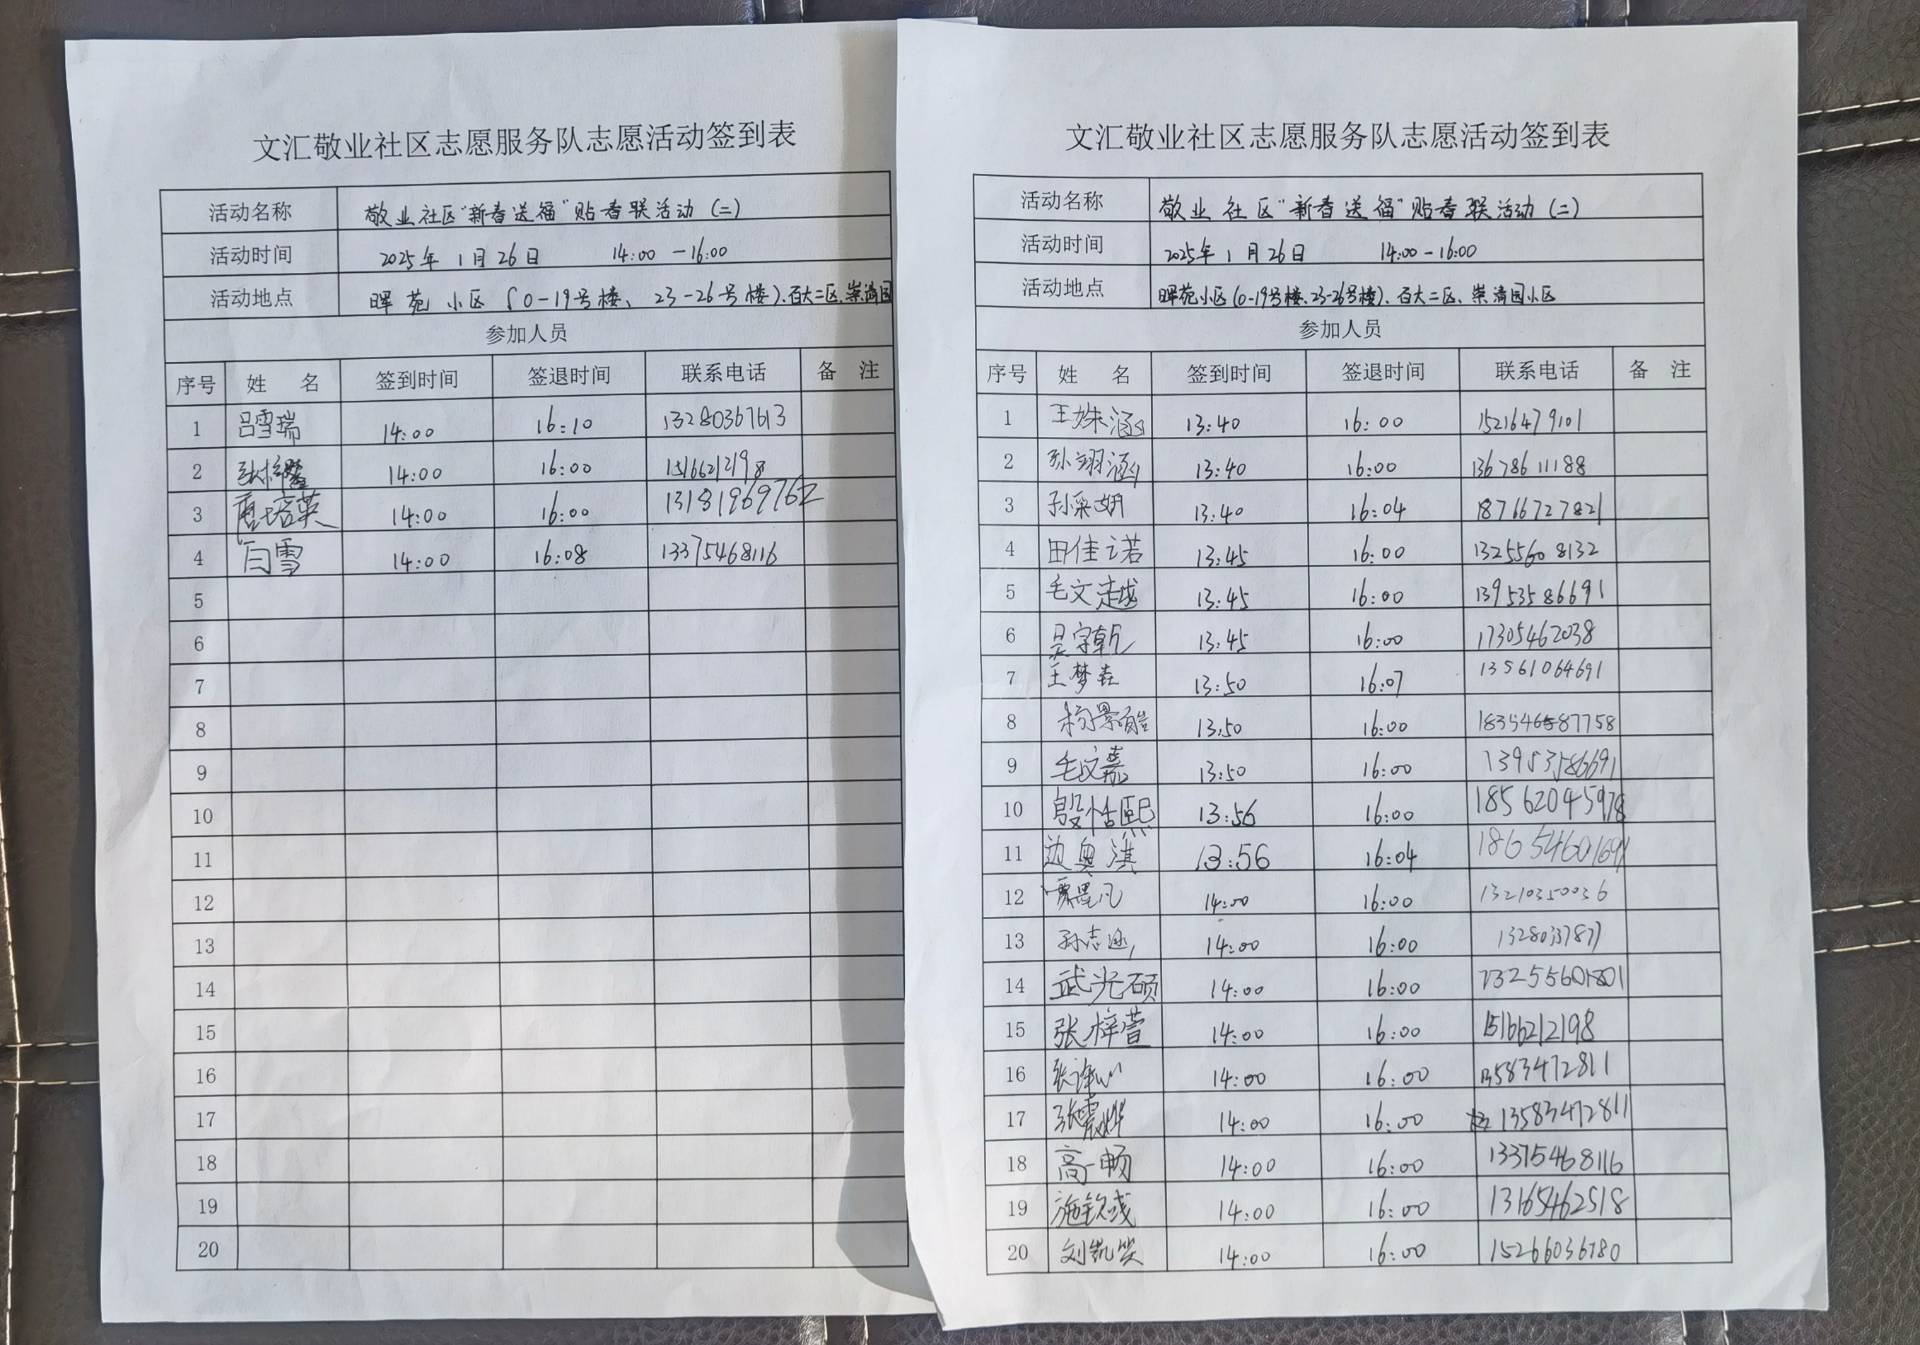 文汇敬业社区志愿服务队志愿活动签到表
活动名称 敬业社区“新春送福”贴春联活动(二)
活动时间 2025年1月26日 14:00-16:00
活动地点 晖苑小区(0-19号楼、23-26号楼).百大二区.崇清园
参加人员
序号 姓 名 签到时间 签退时间 联系电话 备 注
1 吕雪瑞 14:00 16:10 13280367613
2 14:00 16:00 15166212198
3 唐培英 14:00 16:00 13181969762
4 白雪 14:00 16:08 13375468116
5
6
7
8
9
10
11
12
13
14
15
16
17
18
19
20
文汇敬业社区志愿服务队志愿活动签到表
活动名称 敬业社区“新春送福”贴春联活动(二)
活动时间 2025年1月26日 14:00-16:00
活动地点 晖苑小区(0-19号楼、23-26号楼).百大二区、崇清园小区
参加人员
序号 姓 名 签到时间 签退时间 联系电话 备 注
1 王姝涵 13:40 16:00 15216479101
2 孙翊涵 13:40 16:00 13678611188
3 孙采妍 13:40 16:04 18766727821
4 田佳诺 13:45 16:00 13255608132
5 毛文越 13:45 16:00 13953586691
6 吴宇航 13:45 16:00 17305462038
7 王梦垚 13:50 16:07 13561064691
8 13:50 16:00
9 毛文嘉 13:50 16:00 13953586691
10 殷恬熙 13:56 16:00 18562045978
11 边奥淇 13:56 16:04 18654601691
12 贾墨凡 14:00 16:00 13210350036
13 孙志涵 14:00 16:00
14 武光硕 14:00 16:00 13255601801
15 张梓萱 14:00 16:00 15166212198
16 14:00 16:00 13583472811
17 张震烨 14:00 16:00 13583472811
18 高畅 14:00 16:00 13375468116
19 施钦彧 14:00 16:00 13165462518
20 刘凯笑 14:00 16:00 15266036780